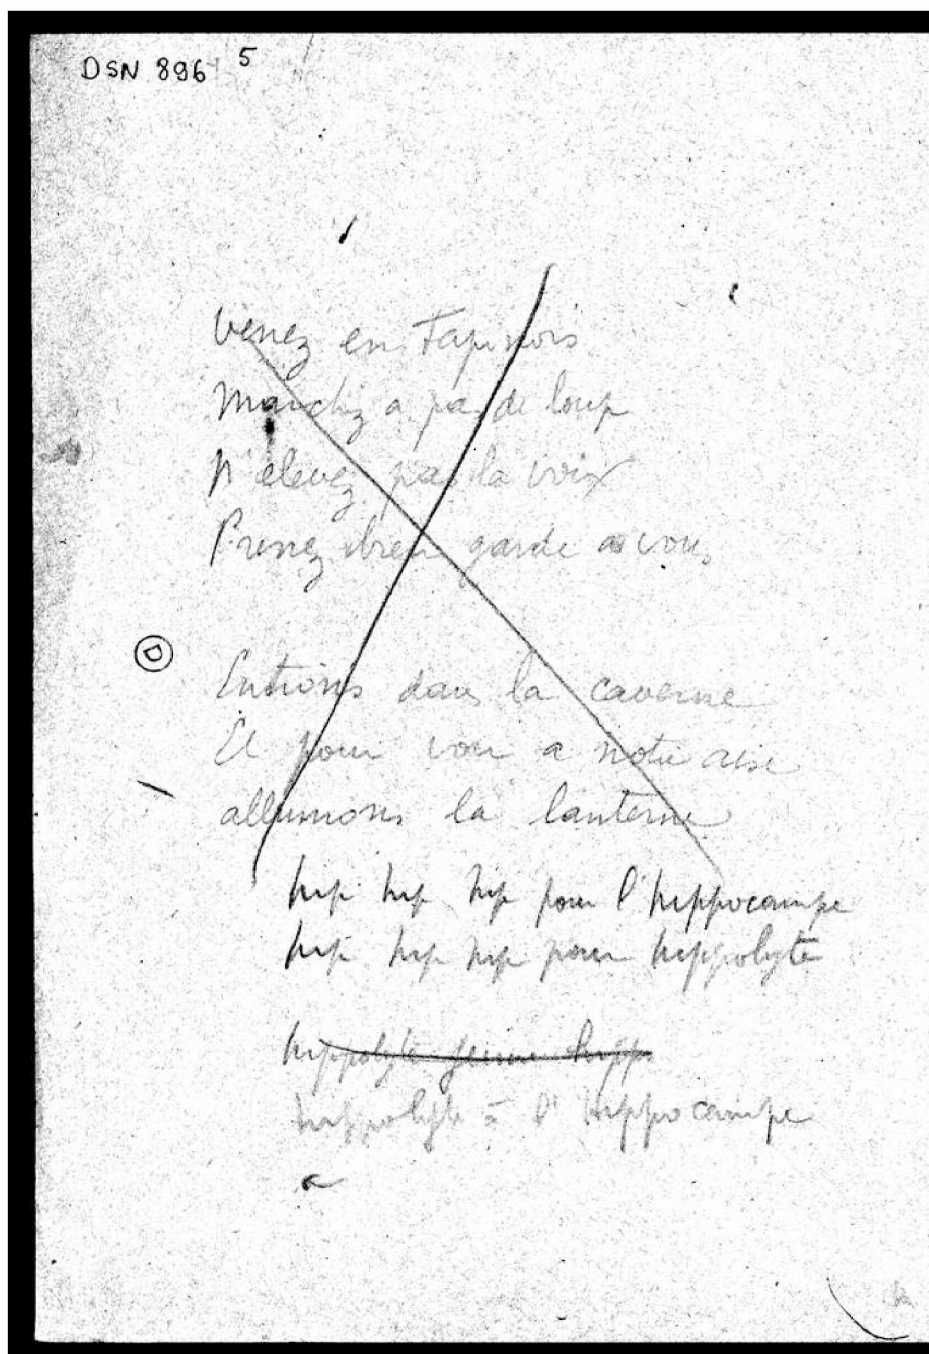 DSN 896 5
Venez en Tapinois
Marchez a pas de loup
N'elevez pas la voix
Prenez bien garde a vous
D
Entrons dans la caverne
Et pour voir a notre aise
allumons la lanterne
hip hip hip pour l'hippocampe
hip hip hip pour hippolyte
hippolyte hipp
hippolyte à l'hippocampe